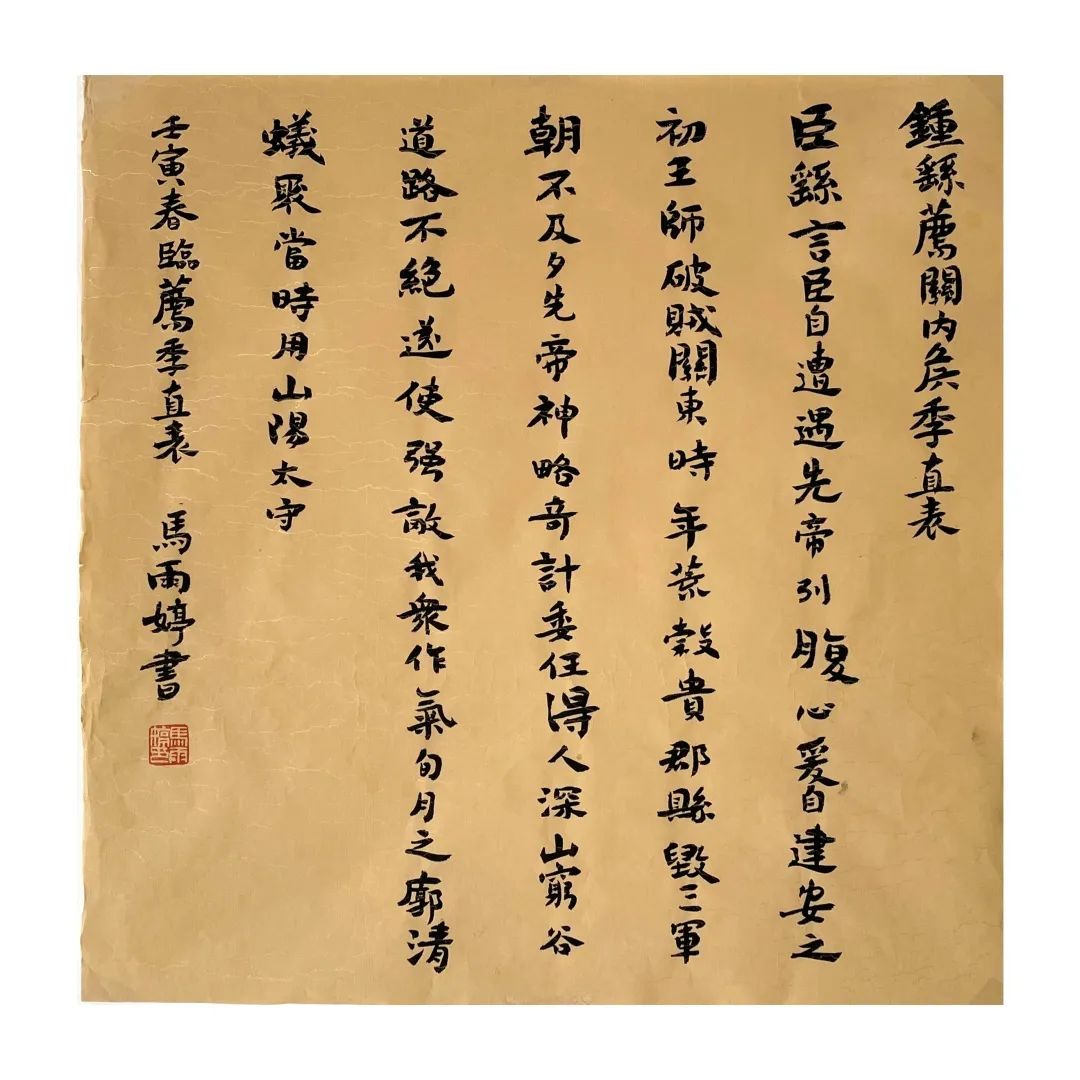 鍾繇薦關内侯季直表
臣繇言臣自遭遇先帝列腹心爰自建安之
初王師破賊關東時年荒穀貴郡縣毀三軍
朝不及夕先帝神略奇計委任得人深山窮谷
道路不絕遂使强敵我衆作氣旬月之廓清
蟻聚當時用山陽太守
壬寅春臨薦季直表 馬雨婷書
馬雨婷印